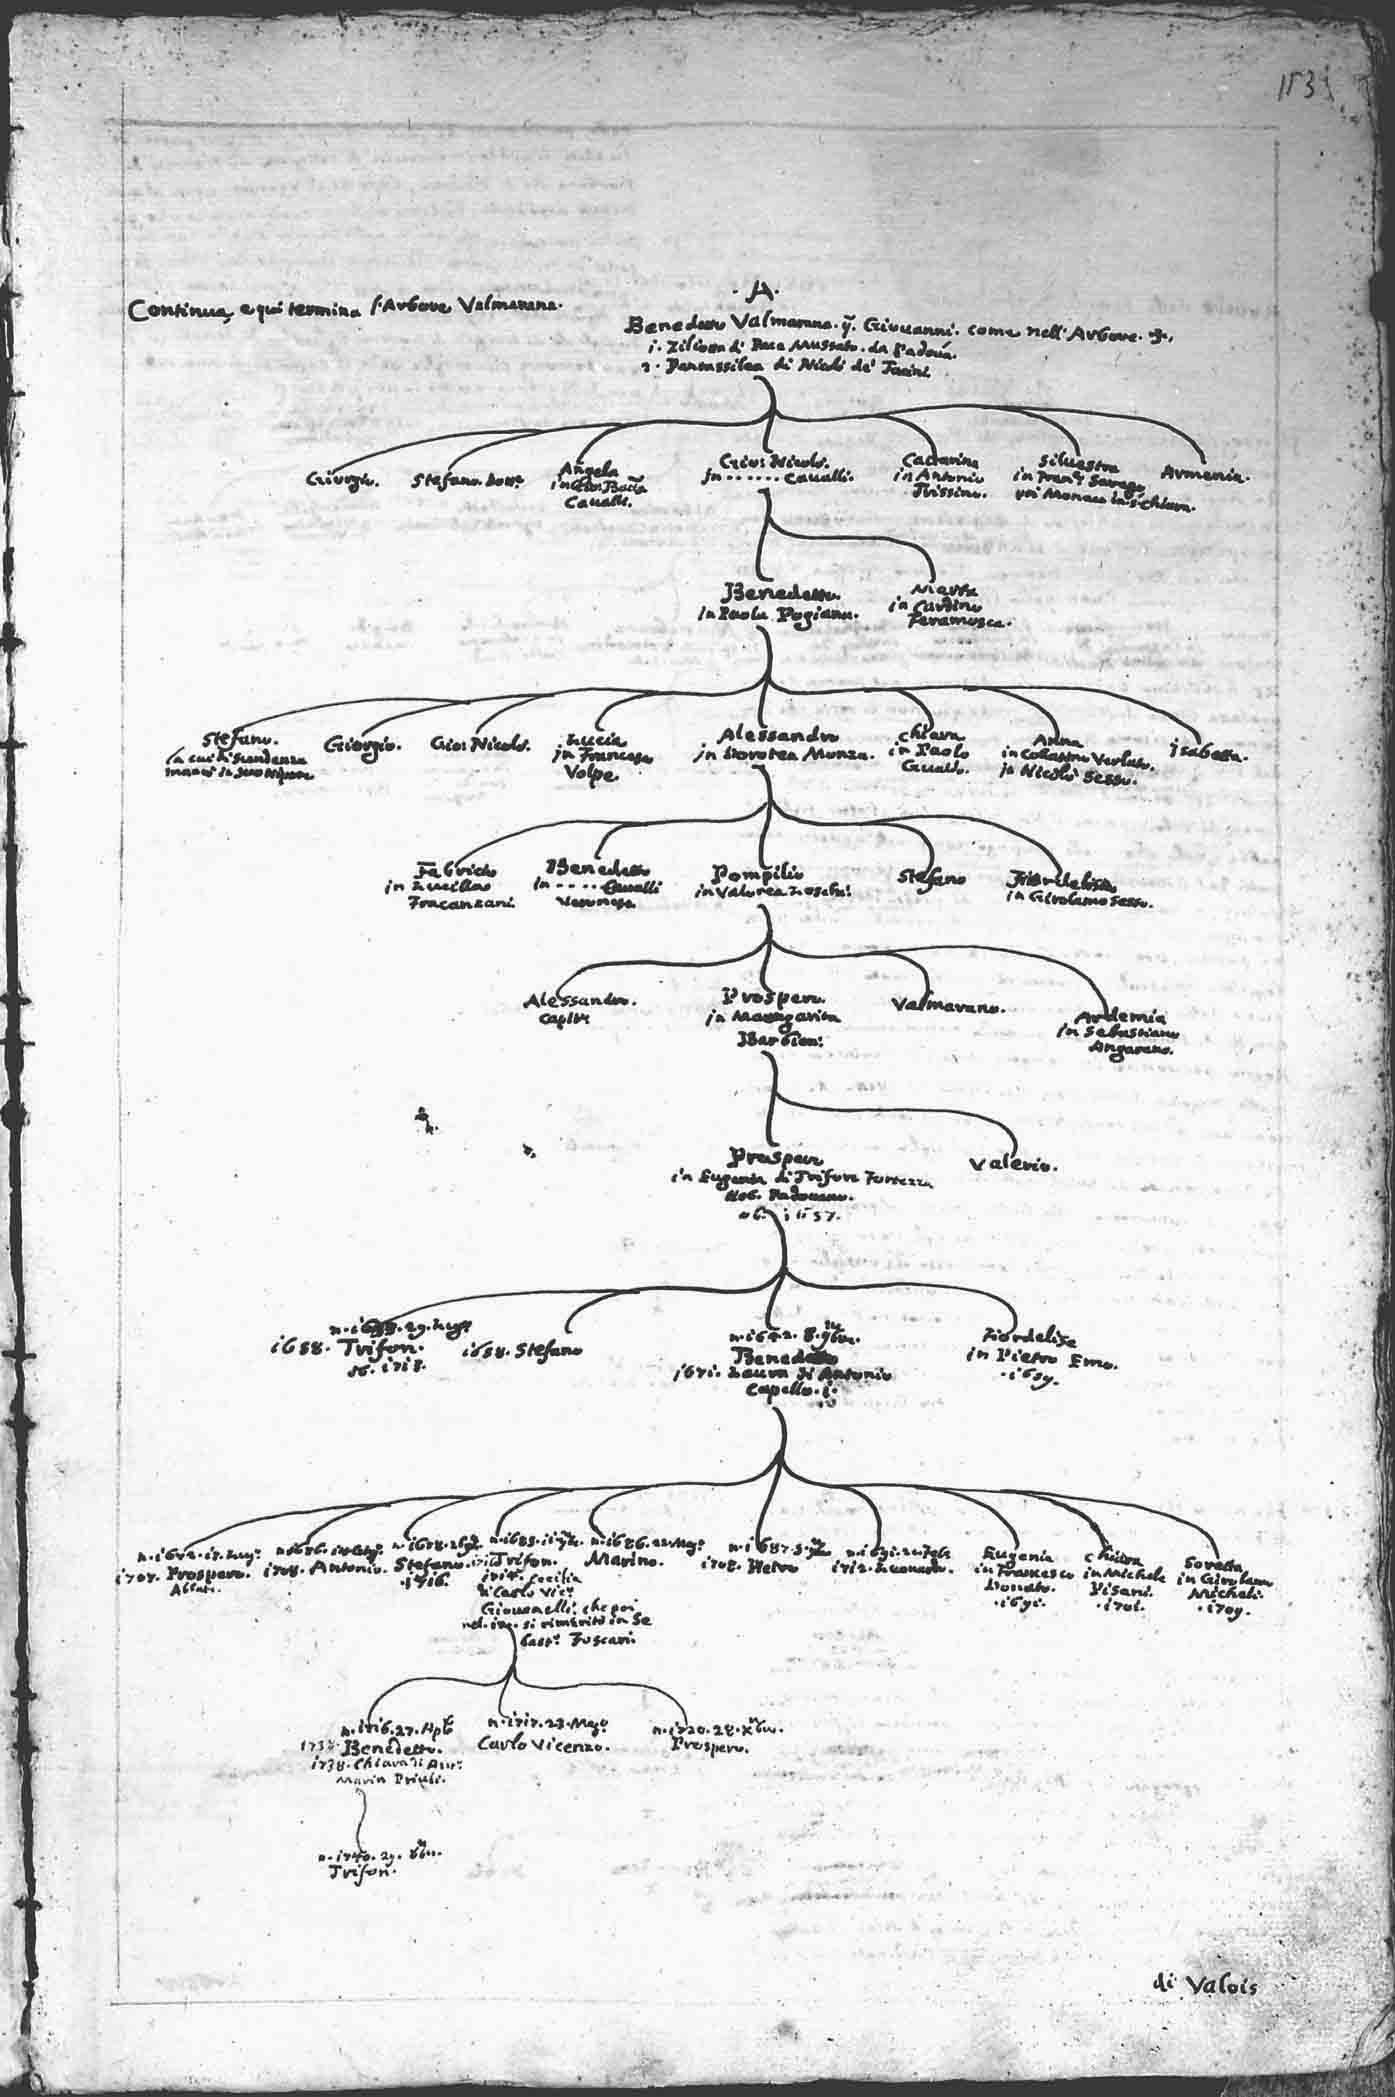 Continua, e qui termina l'Arbore Valmarana.
.A.
Benedetto Valmarana. q. Giovanni. come nell'Arbore. B.
1. di Pace Mussato. da Padova.
2. di Nicolò de'
Giorgio.
Stefano. Dott.
Angela
in Gio: Batta
Cavalli.
Gio: Nicolò.
in ...... Cavalli.
Cattarina
in Antonio
Trissino.
Silvestra
in Franc.
poi Monaca in S. Chiara.
Armenia.
Benedetto.
in Paola Pogiana.
in Cardino
Peramosca.
Stefano.
la cui discendenza
Giorgio.
Gio: Nicolò.
Lucia
in Francesco
Volpe
Alessandro
in Dorotea Monza.
Chiara
in Paolo
Gualdo.
Anna
in Verlato.
in Nicolò Sesso.
Isabetta.
Fabricio
in Lucilla
Fracanzani.
Benedetto
in .... Cavalli
Veronese
Pompilio
in Valorea Loschi.
Stefano
Fiordelisa
in Girolamo Sesso.
Alessandro.
Prospero
in Margarita
Barbieri.
Valmarano.
Ardemia
in Sebastiano
Angarano.
Prospero
in Eugenia di Trifon Fortezza
Nob. Padovano.
Valerio.
1658. Trifon.
ob. 1718.
1658. Stefano
Benedetto
1671. Laura di Antonio
Capello.
Fiordelise
in Pietro Emo.
.1659.
1707. Prospero.
Abbate.
1708. Antonio.
Stefano.
.1716.
Trifon.
1714. Cecilia
di Carlo Vic.
Giovanelli, che poi
si rimaritò in Se
bast. Foscari.
Marino.
1708. Pietro
1712. Lunardo.
Eugenia
in Francesco
Donato.
.1691.
Chiara
in Michele
Pisani.
.1701.
Loretta
in Girolamo
Micheli.
.1709.
n. 1716. 27. Aple
Benedetto.
1738. Chiara di
Marin Priuli.
n. 1717. 23. Magg.
Carlo Vicenzo.
n. 1720. 28. Xbre.
Prospero.
n. 1740. 29.
Trifon.
di Valois